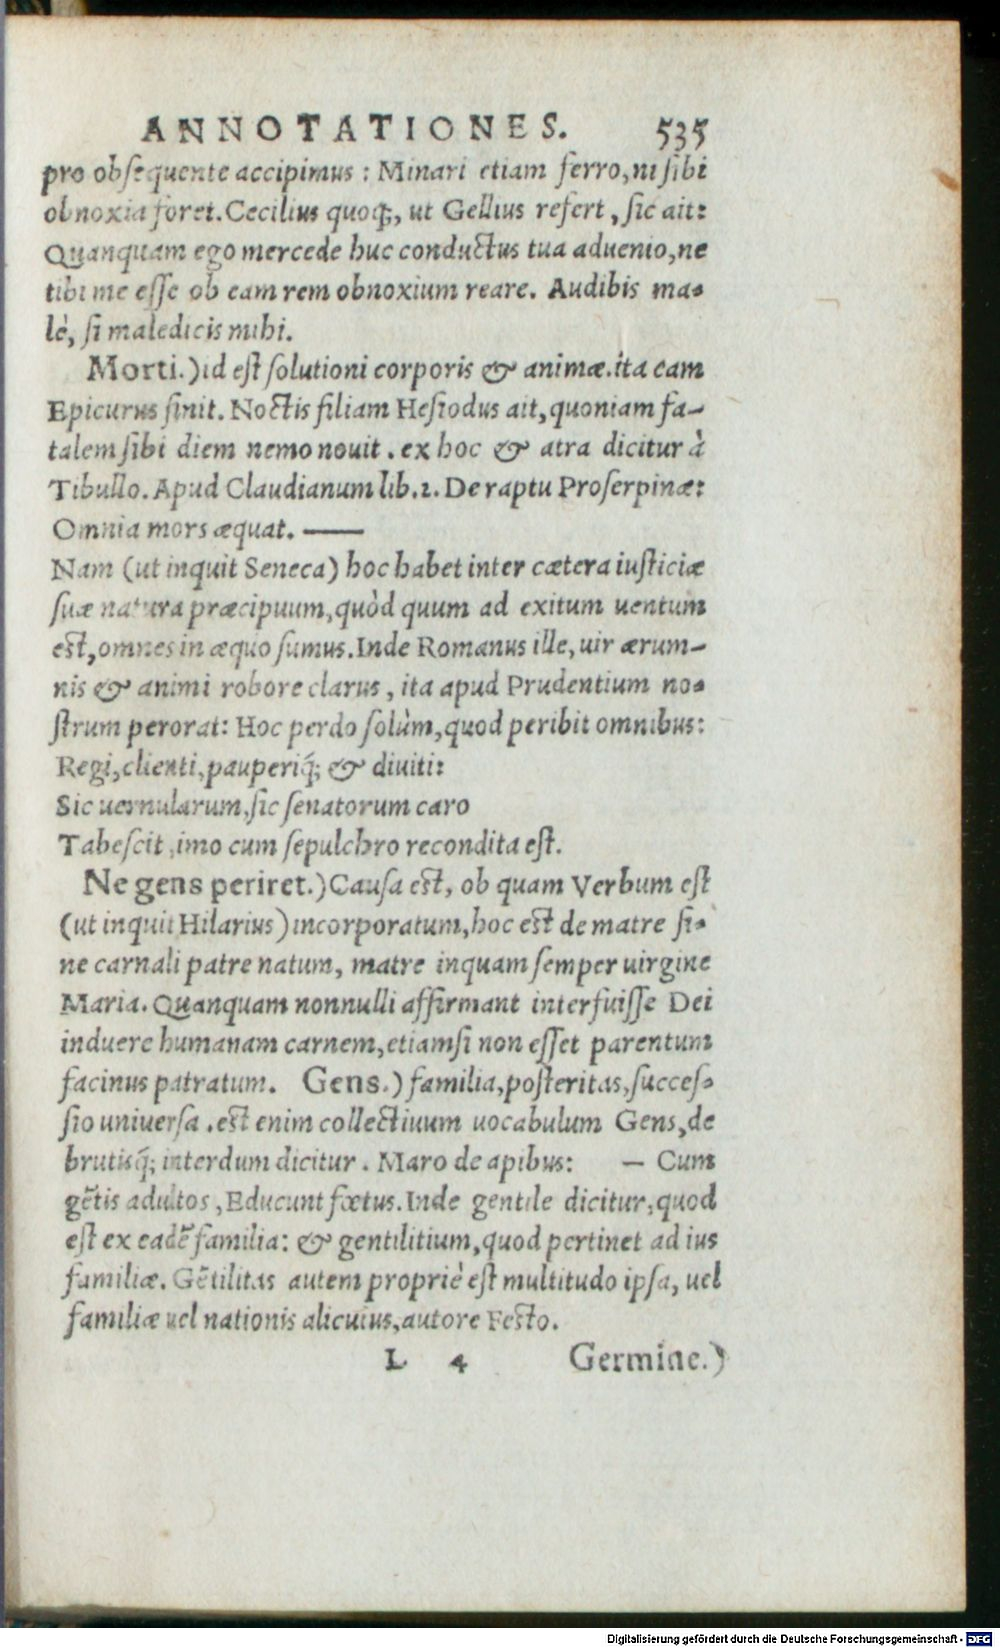 ANNOTATIONES. 535
pro obsequente accipimus : Minari etiam ferro, ni sibi
obnoxia foret. Cecilius quoq;, ut Gellius refert, sic ait:
Quanquam ego mercede huc conductus tua aduenio, ne
tibi me esse ob eam rem obnoxium reare. Audibis ma-
lè, si maledicis mihi.
Morti.) id est solutioni corporis & animæ. ita eam
Epicurus finit. Noctis filiam Hesiodus ait, quoniam fa-
talem sibi diem nemo nouit. ex hoc & atra dicitur à
Tibullo. Apud Claudianum lib. 2. De raptu Proserpinæ:
Omnia mors æquat. —
Nam (ut inquit Seneca) hoc habet inter cætera iusticiæ
suæ natura præcipuum, quòd quum ad exitum uentum
est, omnes in æquo sumus. Inde Romanus ille, uir ærum-
nis & animi robore clarus, ita apud Prudentium no-
strum perorat: Hoc perdo solùm, quod peribit omnibus:
Regi, clienti, pauperiq́; & diuiti:
Sic uernularum, sic senatorum caro
Tabescit, imo cum sepulchro recondita est.
Ne gens periret.) Causa est, ob quam Verbum est
(ut inquit Hilarius) incorporatum, hoc est de matre si-
ne carnali patre natum, matre inquam semper uirgine
Maria. Quanquam nonnulli affirmant interfuisse Dei
induere humanam carnem, etiamsi non esset parentum
facinus patratum. Gens.) familia, posteritas, succes-
sio uniuersa. est enim collectiuum uocabulum Gens, de
brutisq́; interdum dicitur. Maro de apibus: — Cum
gẽtis adultos, Educunt fœtus. Inde gentile dicitur, quod
est ex eadẽ familia: & gentilitium, quod pertinet ad ius
familiæ. Gẽtilitas autem propriè est multitudo ipsa, uel
familiæ uel nationis alicuius, autore Festo.
L 4 Germine.)
Digitalisierung gefördert durch die Deutsche Forschungsgemeinschaft - DFG